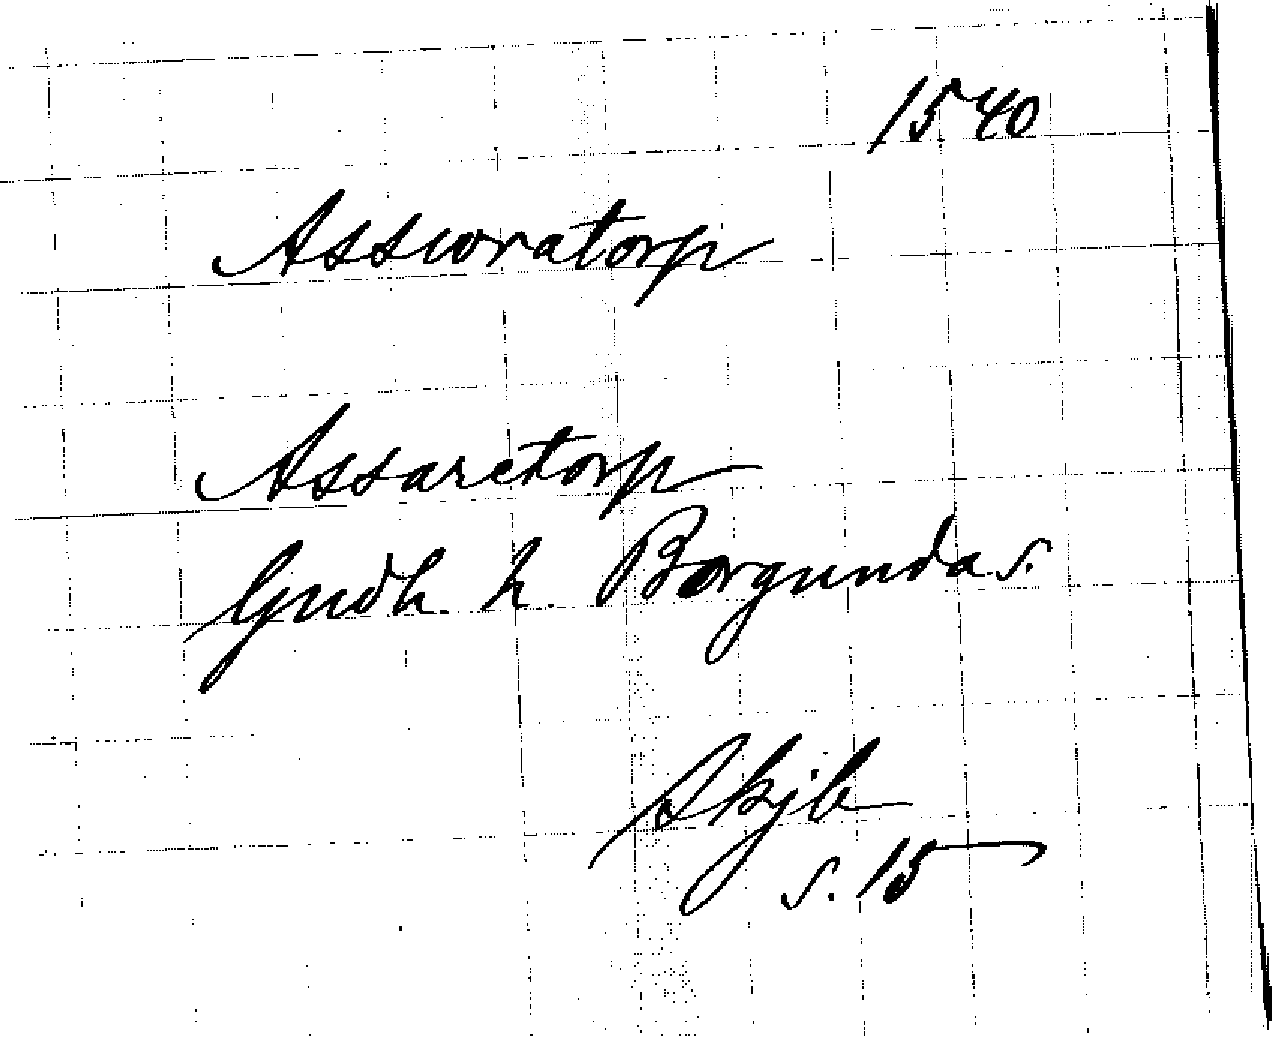 1540
Assworatorp
Assaretorp
Gudh. h. Borgunda s.
Skjb
s. 15